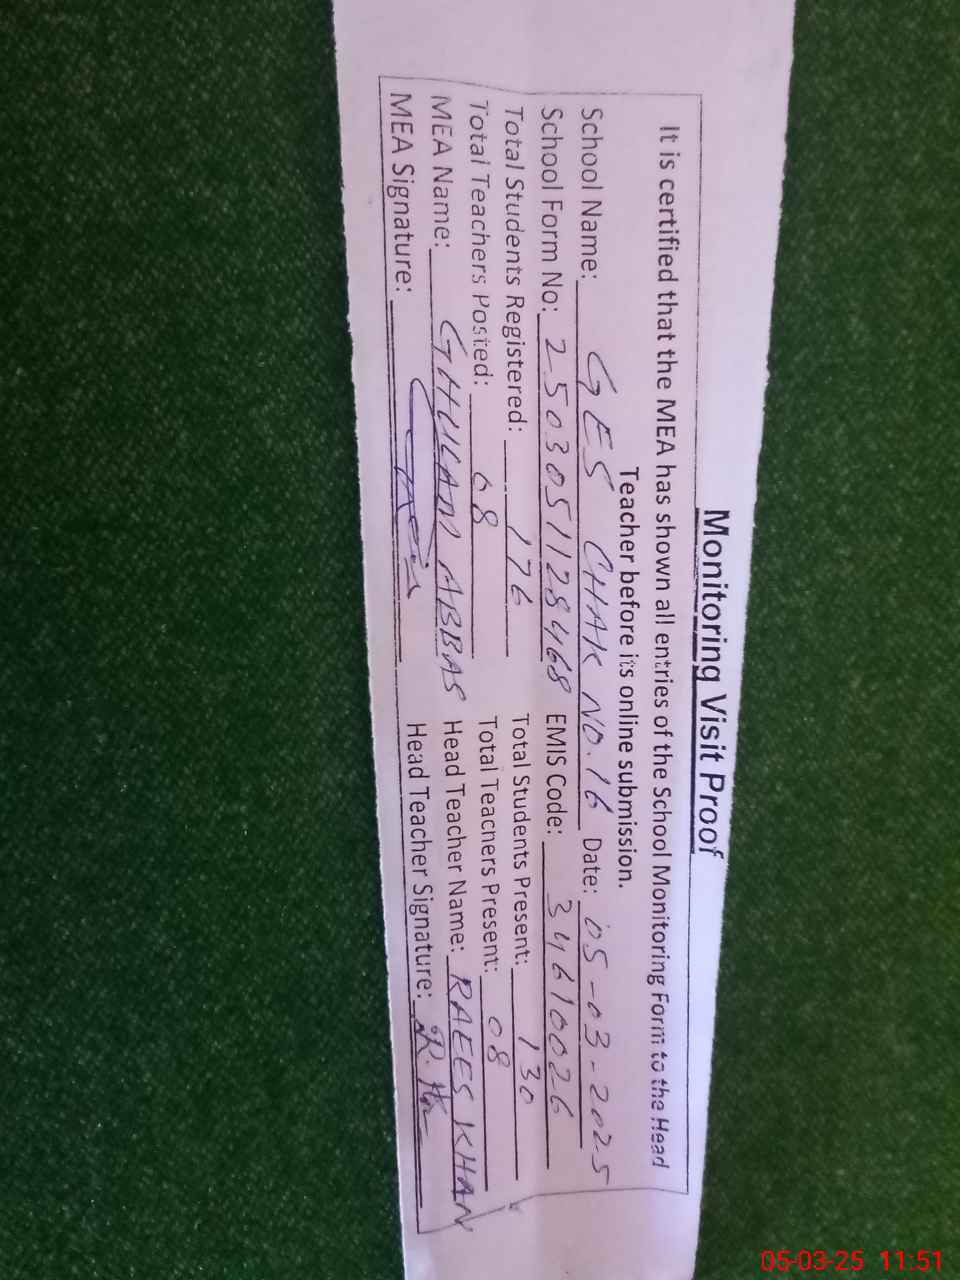 Monitoring Visit Proof
It is certified that the MEA has shown all entries of the School Monitoring Form to the Head
Teacher before its online submission.
School Name: GES CHAK NO.16 Date: 05-03-2025
School Form No: 2503051128468 EMIS Code: 34610026
Total Students Registered: 176 Total Students Present: 130
Total Teachers Posted: 08 Total Teachers Present: 08
MEA Name: GHULAM ABBAS Head Teacher Name: RAEES KHAN
MEA Signature: Head Teacher Signature:
05-03-25 11:51